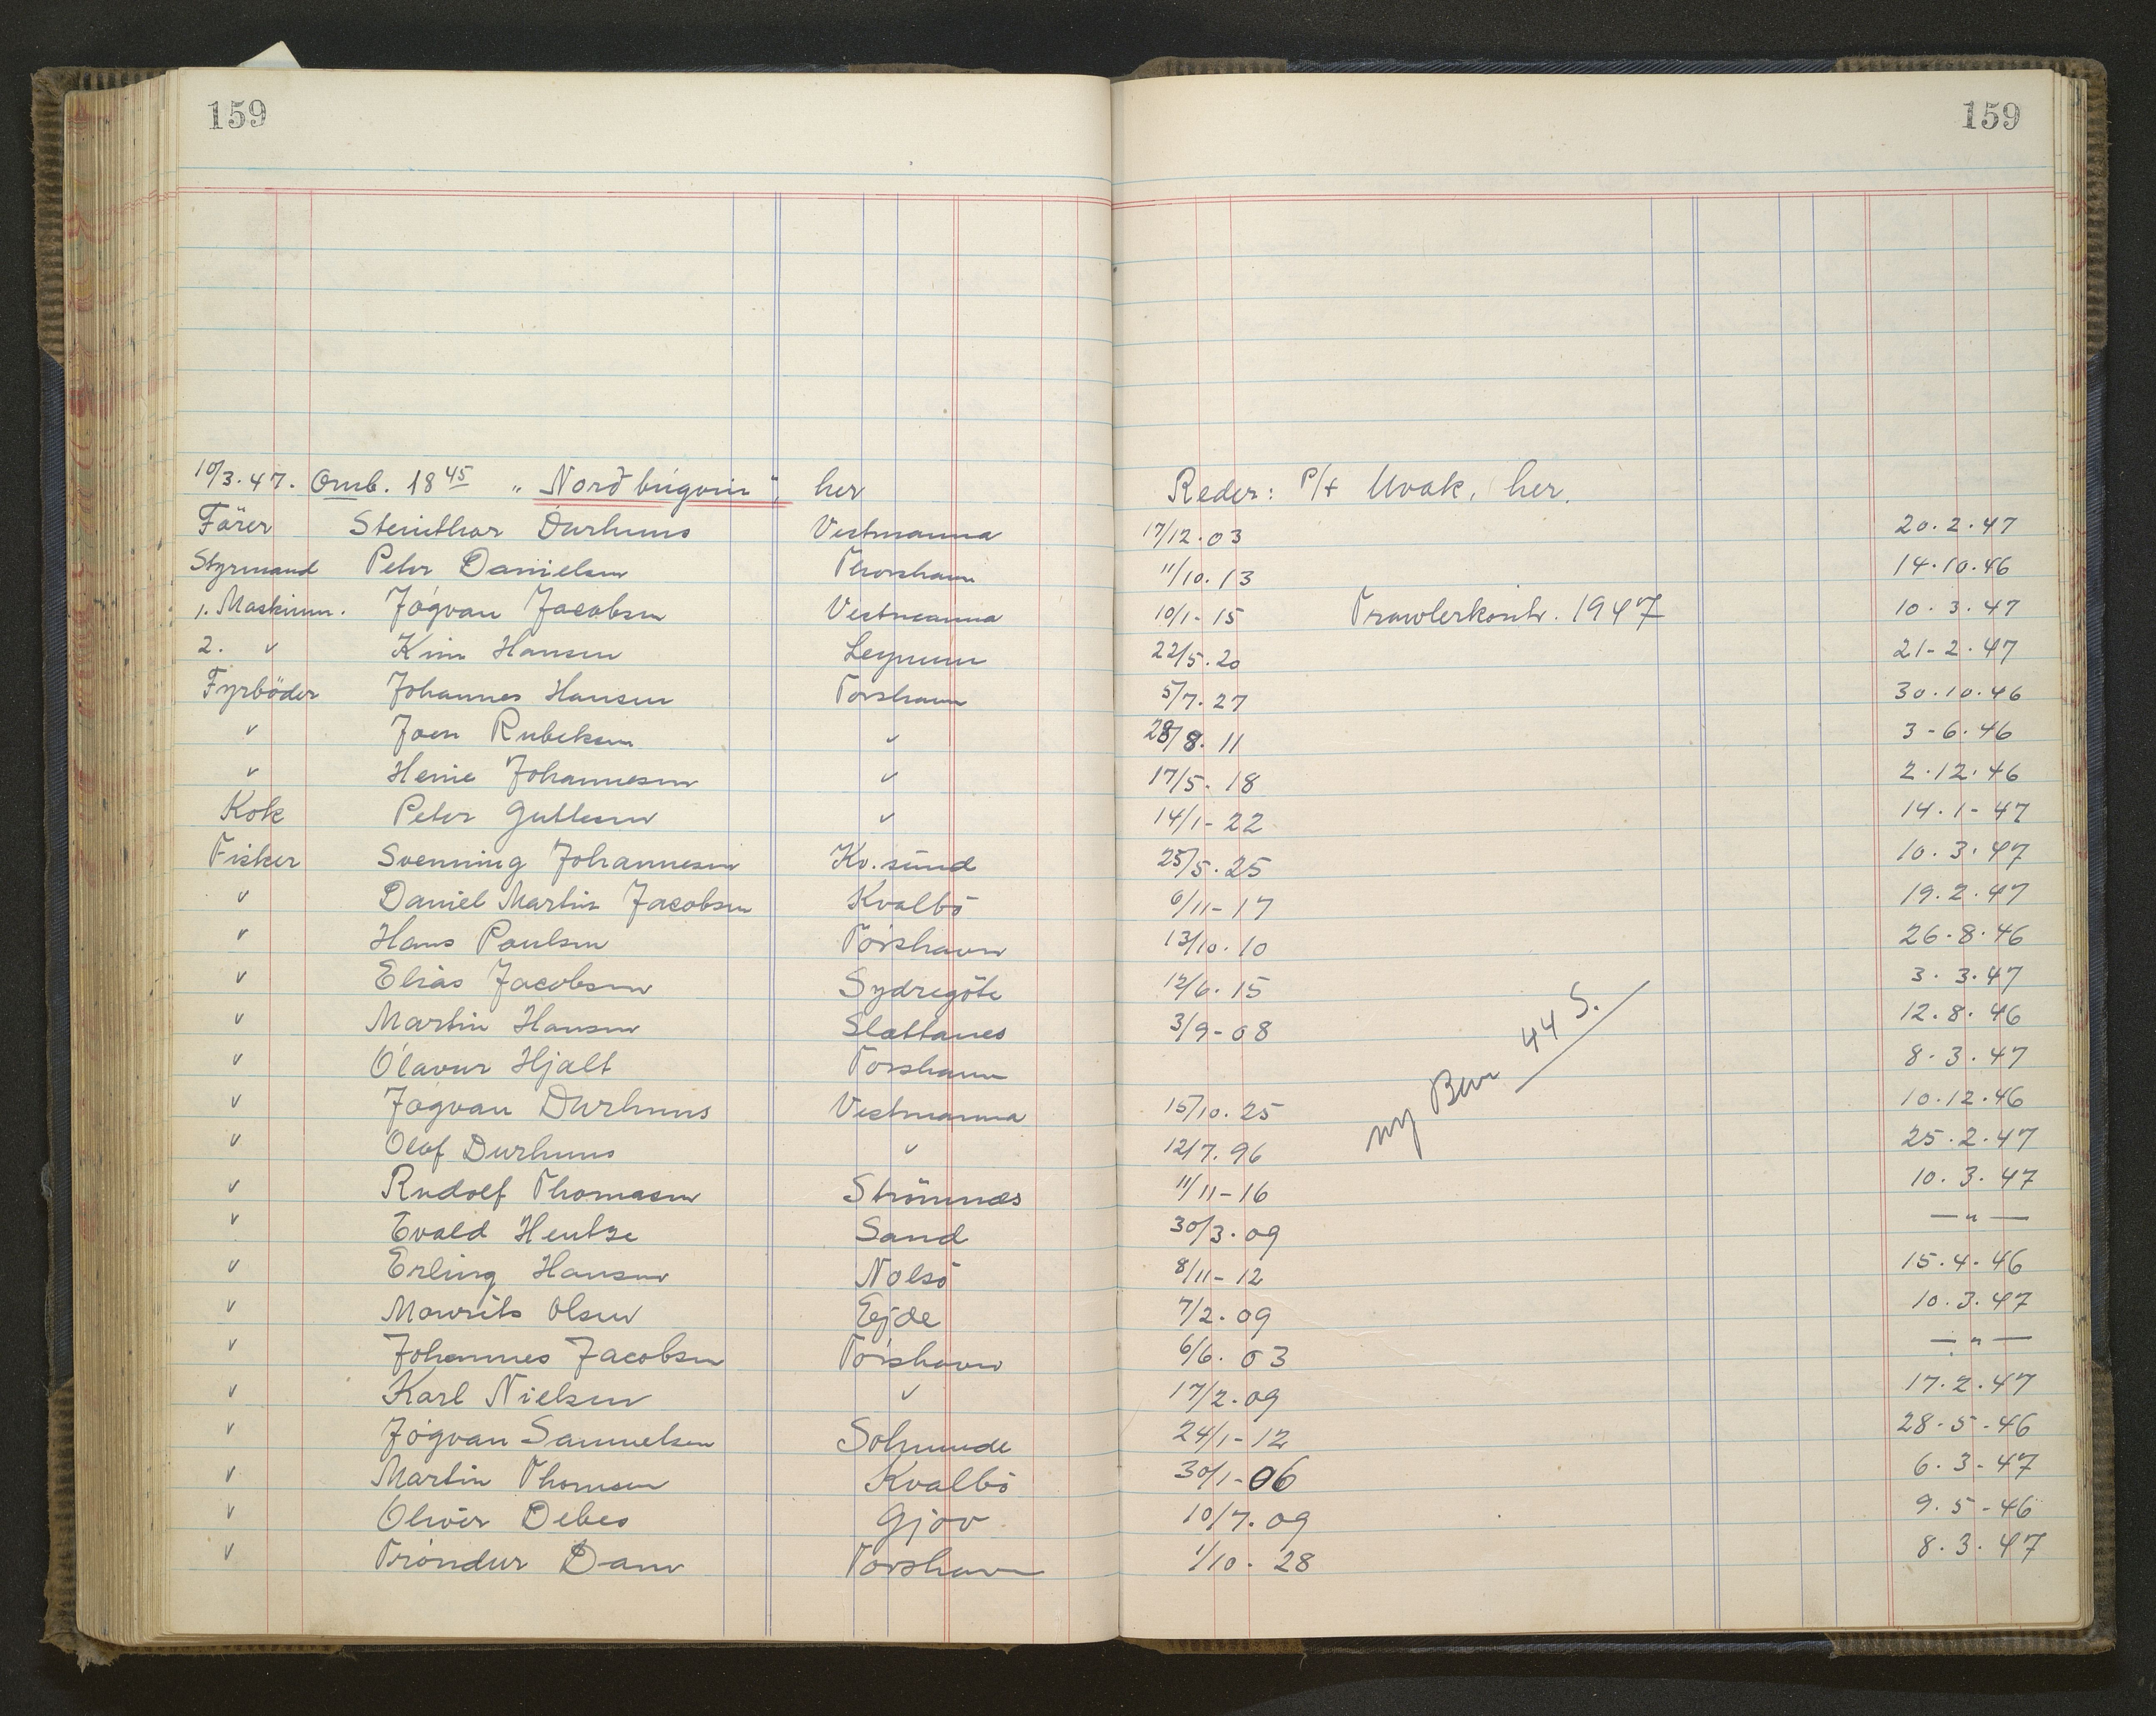 159 159
10/3.47. Omb. 18 45 „Nordbúgvin", her Reder: P/f Uvak, her.
Förer Steinthor Durhuus Vestmanna 17/12.03 20.2.47
Styrmand Peter Danielsen Thorshavn 11/10.13 14.10.46
1. Maskinm. Jógvan Jacobsen Vestmanna 10/1-15 Trawlerkontr. 1947 10.3.47
2. v Kim Hansen Leynum 22/5.20 21-2.47
Fyrböder Johannes Hansen Torshavn 5/7.27 30.10.46
v Joen Rubeksen v 28/8.11 3-6.46
v Heine Johannesen v 17/5.18 2.12.46
Kok Peter Guttesen v 14/1-22 14.1-47
Fisker Svenning Johannesen Kv.sund 25/5.25 10.3.47
v Daniel Martin Jacobsen Kvalbö 6/11-17 19.2.47
v Hans Poulsen Tórshavn 13/10.10 26.8.46
v Elias Jacobsen Sydregöte 12/6.15 3.3.47
v Martin Hansen Slættanes 3/9-08 12.8.46
v Ólavur Hjalt Torshavn 8.3.47
v Jógvan Durhuus Vestmanna 15/10.25 10.12.46
ny Bem 44 S.
v Olof Durhuus v 12/7.96 25.2.47
v Rudolf Thomasen Strömnæs 11/11-16 10.3.47
v Evald Hentze Sand 30/3.09 — " —
v Erling Hansen Nolsö 8/11-12 15.4.46
v Mourits Olsen Ejde 7/2.09 10.3.47
v Johannes Jacobsen Tórshavn 6/6.03 — " —
v Karl Nielsen v 17/2.09 17.2.47
v Jógvan Samuelsen Solmunde 24/1-12 28.5-46
v Martin Thomsen Kvalbö 30/1-06 6.3-47
v Oliver Debes Gjov 10/7.09 9.5-46
v Tróndur Dam Torshavn 1/10.28 8.3.47